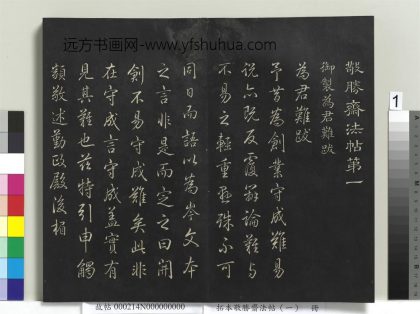 远方书画网-www.yfshuhua.com
敬勝齋法帖第一
御製為君難跋
為君難跋
予昔為創業守成難易
說六既反覆辭論難与
不易之輕重懸殊不可
同日而語以為岑文本
之言非是而定之曰開
創不易守成難矣此非
在守成言守成蓋實有
見其難也茲特引申觸
類敬述勤政殿後楣
1
故帖 000214N000000000 拓本敬勝齋法帖(一)